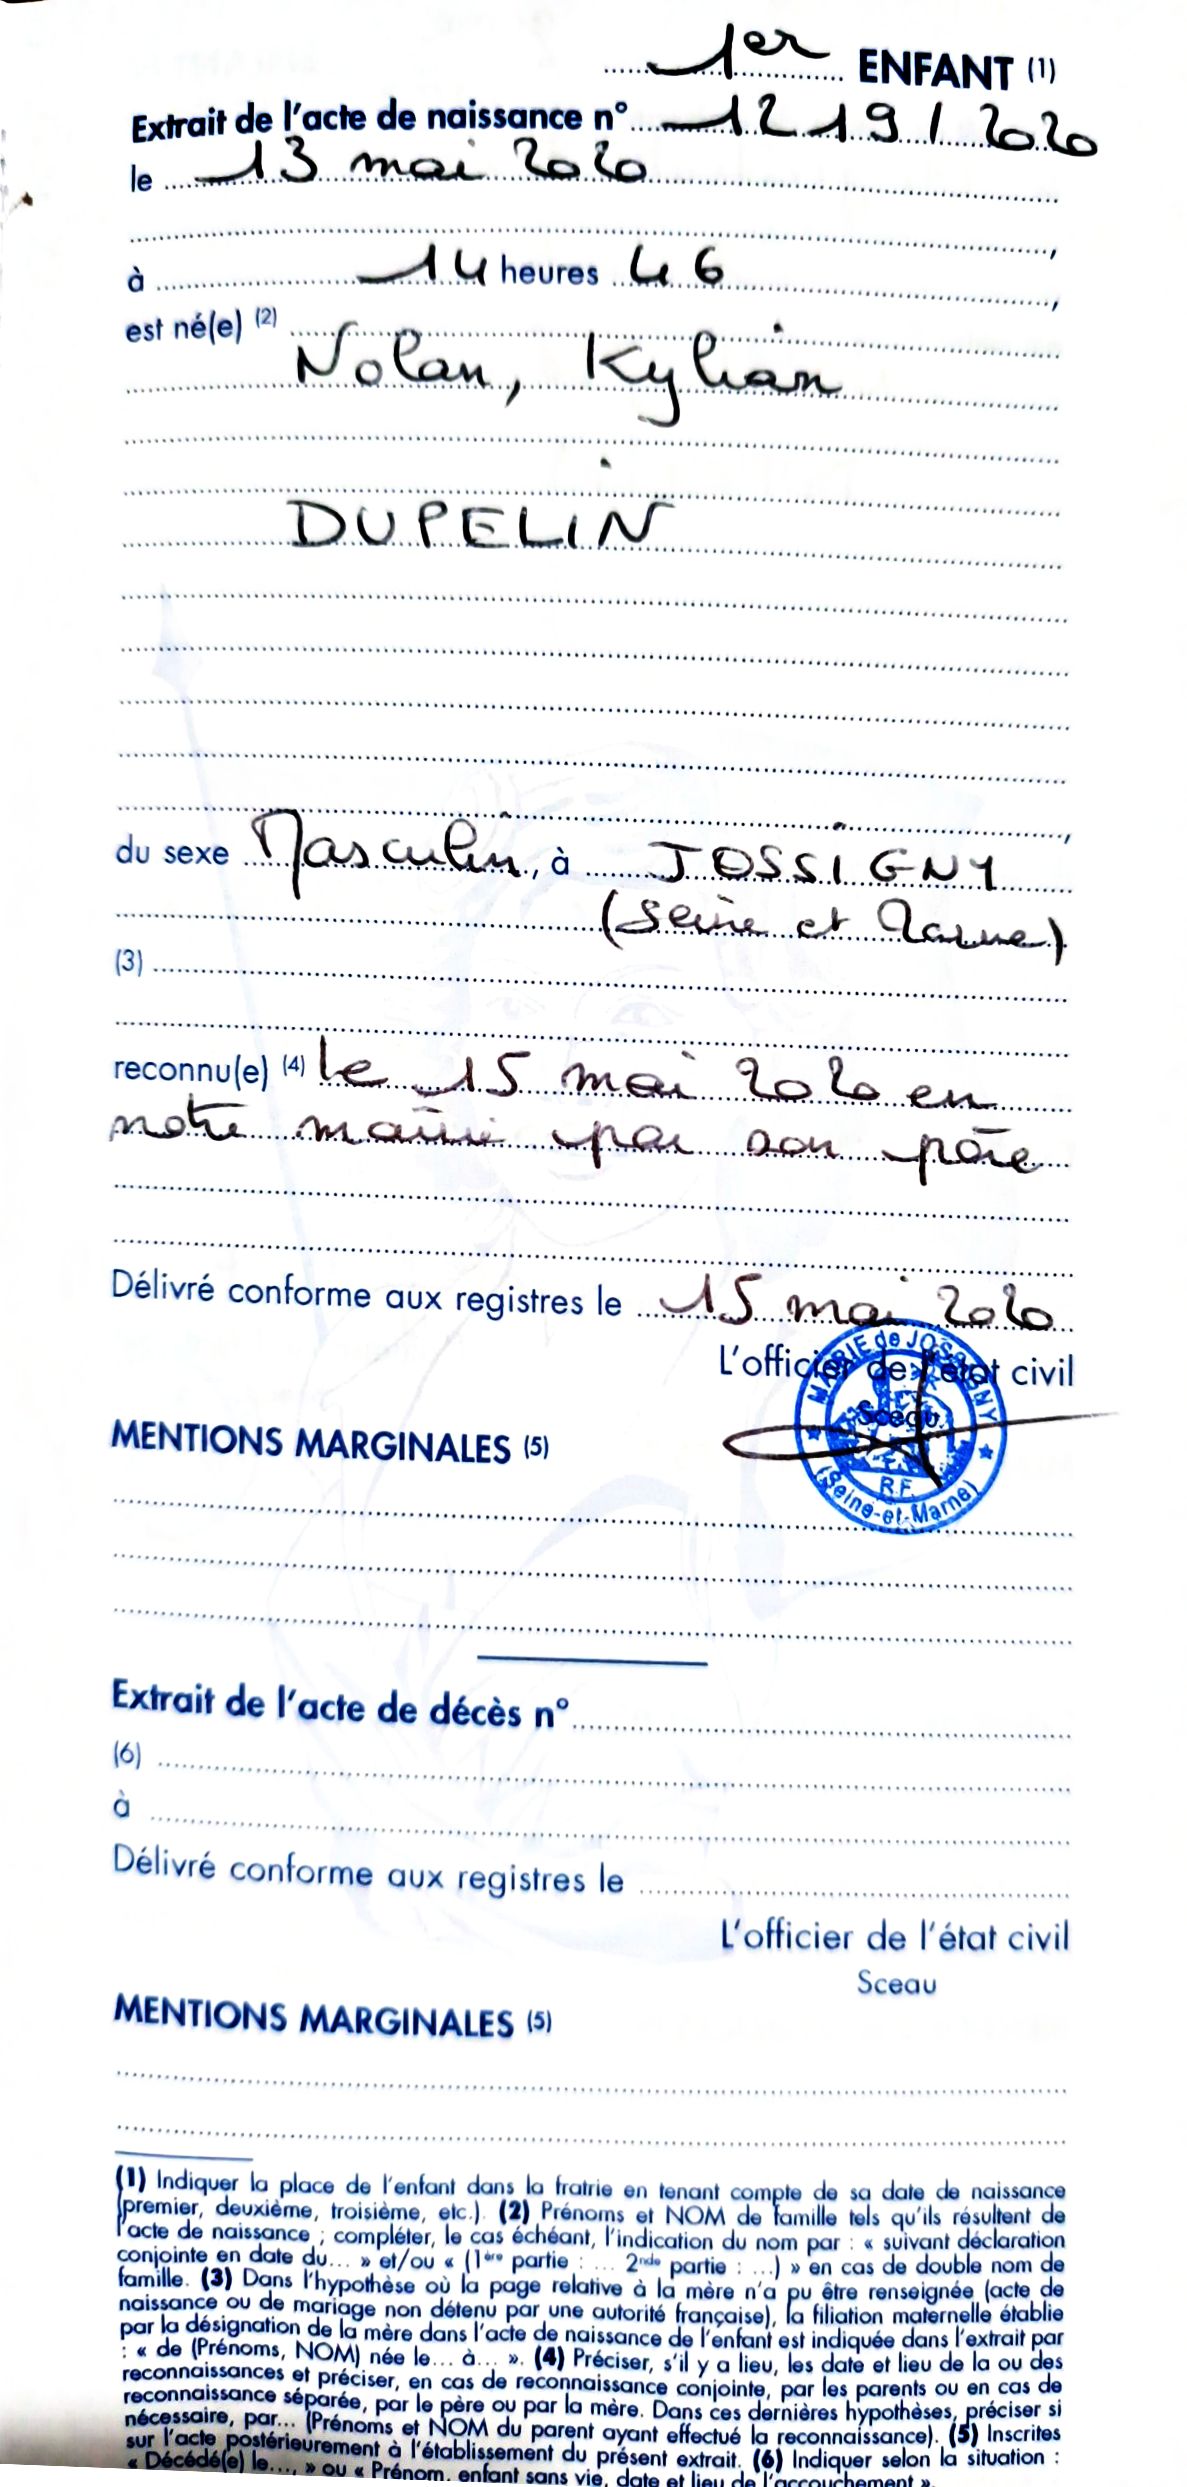 1er ENFANT (1)
Extrait de l'acte de naissance n° 1219/2020
le 13 mai 2020
,
à 14 heures 46 ,
est né(e) (2)
Nolan, Kylian
DUPELIN
,
du sexe Masculin, à JOSSIGNY
(Seine et Marne)
(3)
reconnu(e) (4) le 15 mai 2020 en
notre mairie par son père
Délivré conforme aux registres le 15 mai 2020
L'officier de l'état civil
Sceau
MAIRIE de JOSSIGNY
R.F.
(Seine-et-Marne)
MENTIONS MARGINALES (5)
Extrait de l'acte de décès n°
(6)
à
Délivré conforme aux registres le
L'officier de l'état civil
Sceau
MENTIONS MARGINALES (5)
(1) Indiquer la place de l'enfant dans la fratrie en tenant compte de sa date de naissance
(premier, deuxième, troisième, etc.). (2) Prénoms et NOM de famille tels qu'ils résultent de
l'acte de naissance ; compléter, le cas échéant, l'indication du nom par : « suivant déclaration
conjointe en date du... » et/ou « (1ère partie : ... 2nde partie : ...) » en cas de double nom de
famille. (3) Dans l'hypothèse où la page relative à la mère n'a pu être renseignée (acte de
naissance ou de mariage non détenu par une autorité française), la filiation maternelle établie
par la désignation de la mère dans l'acte de naissance de l'enfant est indiquée dans l'extrait par
: « de (Prénoms, NOM) née le... à... ». (4) Préciser, s'il y a lieu, les date et lieu de la ou des
reconnaissances et préciser, en cas de reconnaissance conjointe, par les parents ou en cas de
reconnaissance séparée, par le père ou par la mère. Dans ces dernières hypothèses, préciser si
nécessaire, par... (Prénoms et NOM du parent ayant effectué la reconnaissance). (5) Inscrites
sur l'acte postérieurement à l'établissement du présent extrait. (6) Indiquer selon la situation :
« Décédé(e) le..., » ou « Prénom, enfant sans vie, date et lieu de l'accouchement ».